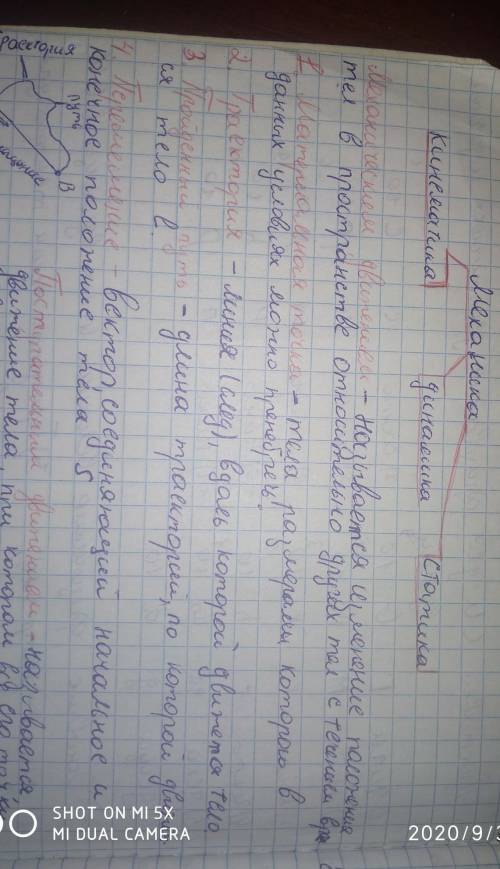 Механика
Кинематика динамика статика
Механическим движением - называется изменение положения
тел в пространстве относительно других тел с течением вре
1. Материальная точка - тела размерами которого в
данных условиях можно пренебречь.
2. Траектория - линия (след), вдоль которой движется тело.
3 Пройденный путь - длина траектории, по которой движет
ся тело l.
4. Перемещение - вектор соединяющий начальное и
конечное положение тела S
траектория
путь
В
Поступательным движением - называется
движение тела, при котором все его точки
SHOT ON MI 5X
MI DUAL CAMERA
2020/9/3